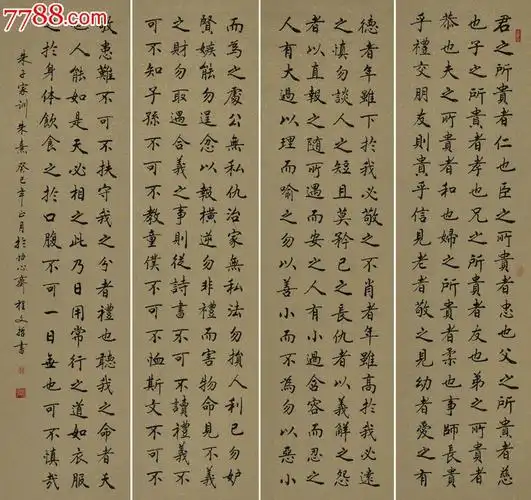 7788.com
君之所貴者仁也臣之所貴者忠也父之所貴者慈
也子之所貴者孝也兄之所貴者友也弟之所貴者
恭也夫之所貴者和也婦之所貴者柔也事師長貴
乎禮交朋友則貴乎信見老者敬之見幼者愛之有
德者年雖下於我必敬之不肖者年雖高於我必遠
之慎勿談人之短且莫矜己之長仇者以義解之怨
者以直報之隨所遇而安之人有小過含容而忍之
人有大過以理而喻之勿以善小而不為勿以惡小
而為之處公無私仇治家無私法勿損人利己勿妒
賢嫉能勿逞忿以報橫逆勿非禮而害物命見不義
之財勿取遇合義之事則從詩書不可不讀禮義不
可不知子孫不可不教童僕不可不恤斯文不可不
敬患難不可不扶守我之分者禮也聽我之命者天
也人能如是天必相之此乃日用常行之道如衣服
之於身体飲食之於口腹不可一日無也可不慎哉
朱子家訓 朱熹 癸巳年正月於怡心齋 程文哲書